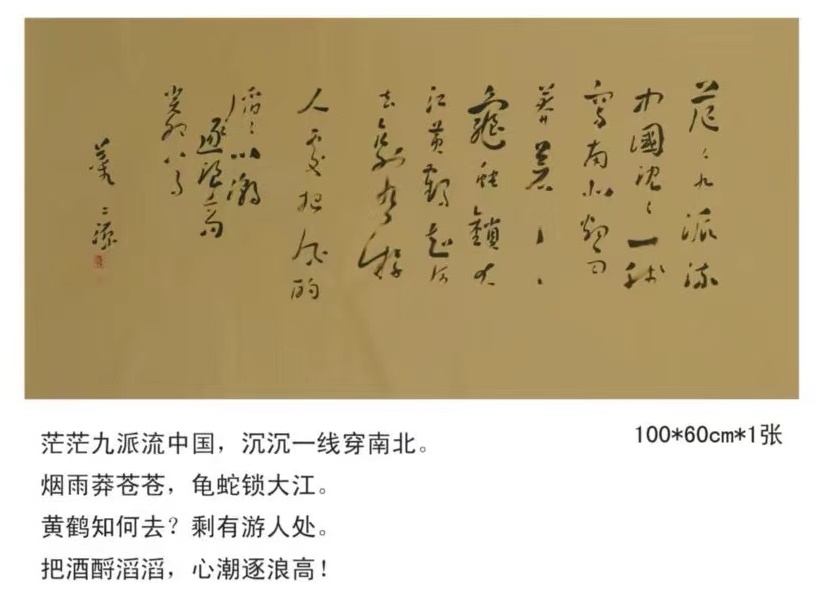 茫〻九派流
中國沉〻一线
穿南北烟雨
莽苍〻
龜蛇鎖大
江黄鶴知何
去剩有游
人處把酒酹
滔〻心潮
逐浪高
癸卯八月
茫茫九派流中国，沉沉一线穿南北。
100*60cm*1张
烟雨莽苍苍，龟蛇锁大江。
黄鹤知何去？剩有游人处。
把酒酹滔滔，心潮逐浪高！